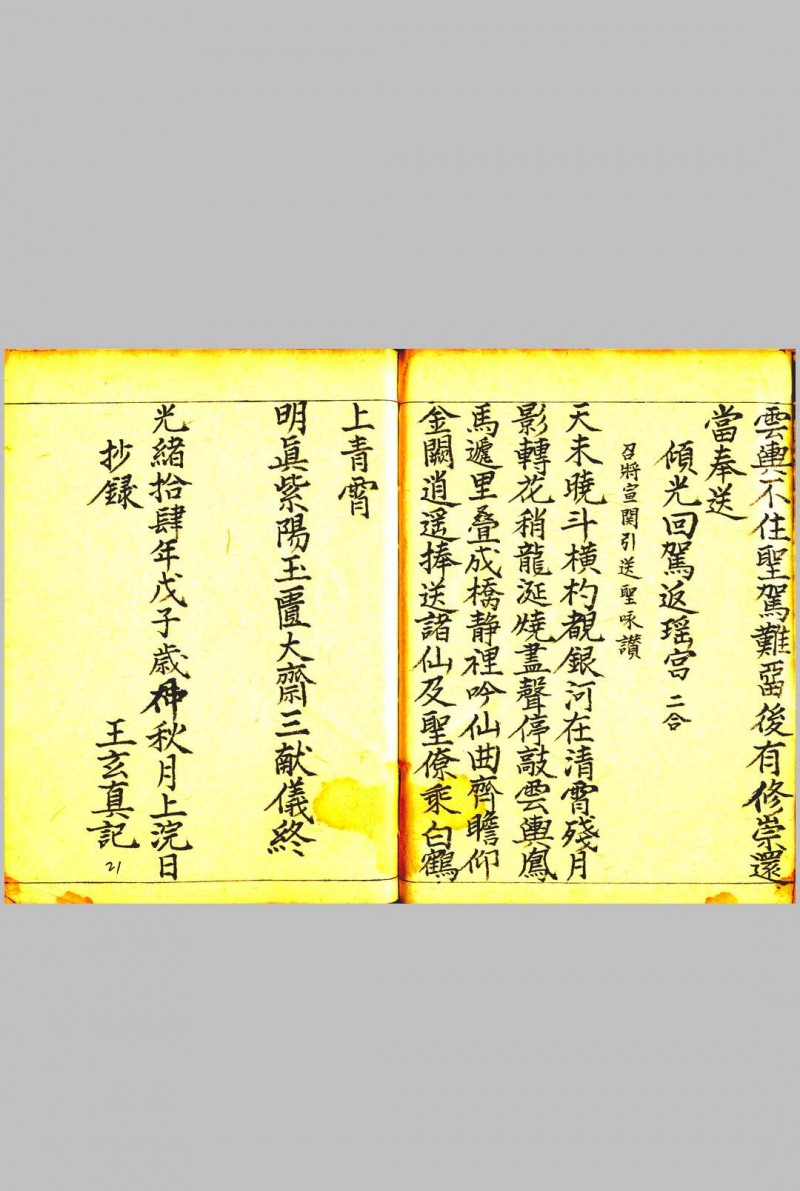 雲輿不住聖駕難畱後有修崇還
當奉送
傾光回駕返瑶宫 二合
召將宣関引送聖咏讃
天未曉斗橫杓覩銀河在清霄殘月
影轉花稍龍涎燒盡聲停敲雲輿鳳
馬遞里叠成橋静裡吟仙曲齊瞻仰
金闕逍遥捧送諸仙及聖僚乘白鶴
上青霄
明眞紫陽玉匱大齋三献儀終
光緒拾肆年戊子歲仲秋月上浣日
抄録
王玄真記
21